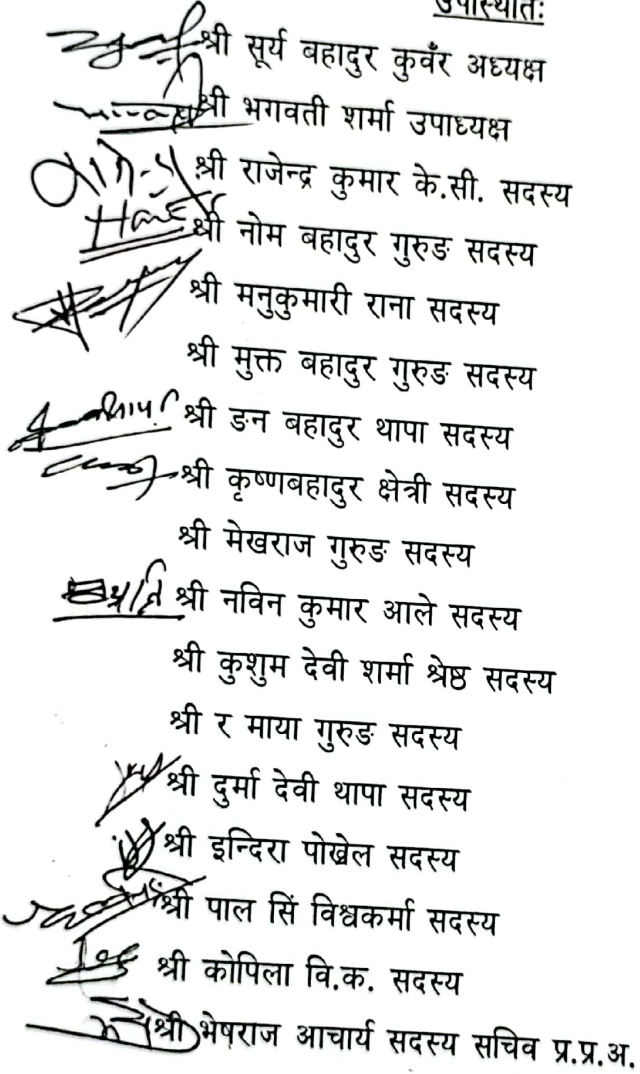 उपस्थितिः
श्री सूर्य बहादुर कुवँर अध्यक्ष
श्री भगवती शर्मा उपाध्यक्ष
श्री राजेन्द्र कुमार के.सी. सदस्य
श्री नोम बहादुर गुरुङ सदस्य
श्री मनुकुमारी राना सदस्य
श्री मुक्त बहादुर गुरुङ सदस्य
श्री ङन बहादुर थापा सदस्य
श्री कृष्णबहादुर क्षेत्री सदस्य
श्री मेखराज गुरुङ सदस्य
श्री नविन कुमार आले सदस्य
श्री कुशुम देवी शर्मा श्रेष्ठ सदस्य
श्री र माया गुरुङ सदस्य
श्री दुर्मा देवी थापा सदस्य
श्री इन्दिरा पोखेल सदस्य
श्री पाल सिं विश्वकर्मा सदस्य
श्री कोपिला वि.क. सदस्य
श्री भेषराज आचार्य सदस्य सचिव प्र.प्र.अ.